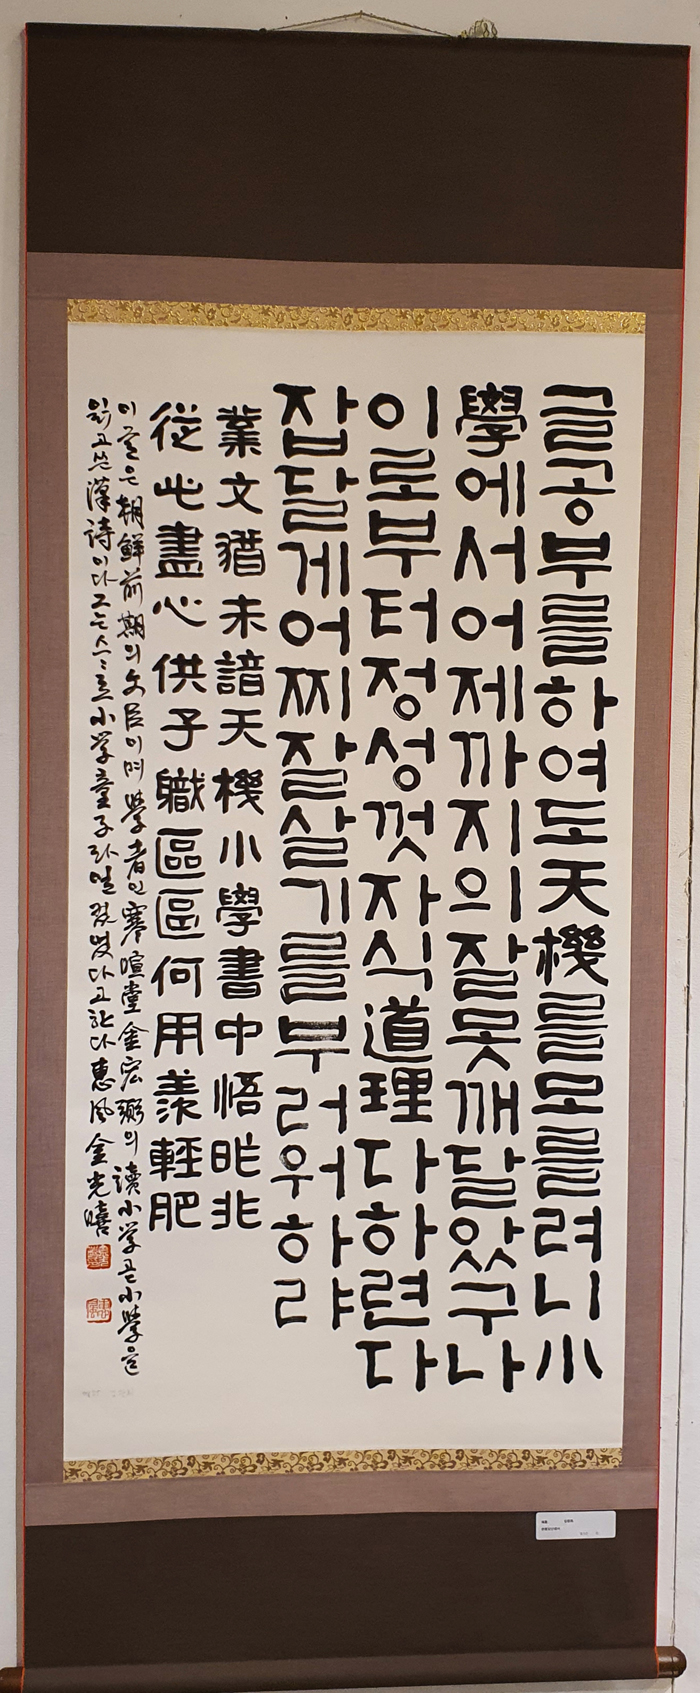 글공부를하여도天機를모를려니小
學에서어제까지의잘못깨달았구나
이로부터정성껏자식道理다하련다
잡달게어찌잘살기를부러워하랴
業文猶未諳天機小學書中悟昨非
從此盡心供子職區區何用羨輕肥
이글은朝鮮前期의文臣이며學者인寒暄堂金宏弼의讀小學곧小學을
읽고쓴漢詩이다그는스스로小學童子라일컬었다고한다惠風金光暿